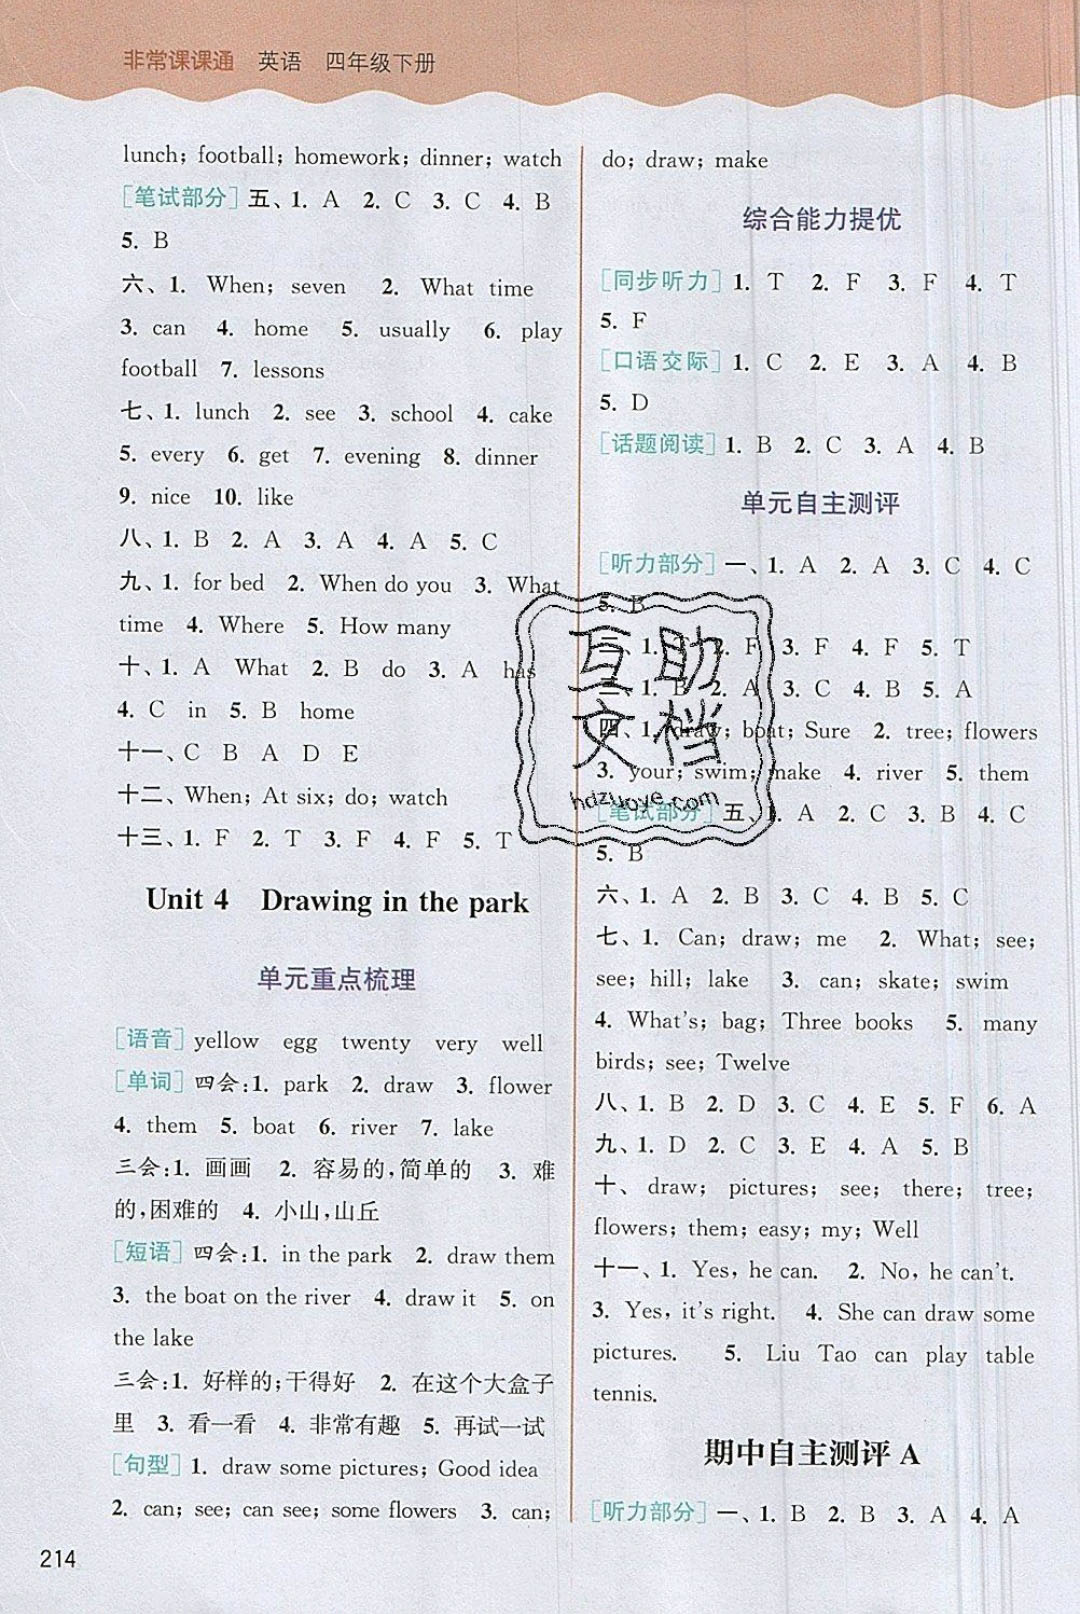 非常课课通 英语 四年级下册
lunch; football; homework; dinner; watch
[笔试部分] 五、1. A 2. C 3. C 4. B
5. B
六、1. When; seven 2. What time
3. can 4. home 5. usually 6. play
football 7. lessons
七、1. lunch 2. see 3. school 4. cake
5. every 6. get 7. evening 8. dinner
9. nice 10. like
八、1. B 2. A 3. A 4. A 5. C
九、1. for bed 2. When do you 3. What
time 4. Where 5. How many
十、1. A What 2. B do 3. A has
4. C in 5. B home
十一、C B A D E
十二、When; At six; do; watch
十三、1. F 2. T 3. F 4. F 5. T
Unit 4 Drawing in the park
单元重点梳理
[语音] yellow egg twenty very well
[单词] 四会:1. park 2. draw 3. flower
4. them 5. boat 6. river 7. lake
三会:1. 画画 2. 容易的,简单的 3. 难
的,困难的 4. 小山,山丘
[短语] 四会:1. in the park 2. draw them
3. the boat on the river 4. draw it 5. on
the lake
三会:1. 好样的;干得好 2. 在这个大盒子
里 3. 看一看 4. 非常有趣 5. 再试一试
[句型] 1. draw some pictures; Good idea
2. can; see; can see; some flowers 3. can;
214
do; draw; make
综合能力提优
[同步听力] 1. T 2. F 3. F 4. T
5. F
[口语交际] 1. C 2. E 3. A 4. B
5. D
[话题阅读] 1. B 2. C 3. A 4. B
单元自主测评
[听力部分] 一、1. A 2. A 3. C 4. C
5. B
二、1. 2. F 3. F 4. F 5. T
三、1. B 2. A 3. C 4. B 5. A
四、1. draw; boat; Sure 2. tree; flowers
3. your; swim; make 4. river 5. them
[笔试部分] 五、1. A 2. C 3. B 4. C
5. B
六、1. A 2. B 3. C 4. B 5. C
七、1. Can; draw; me 2. What; see;
see; hill; lake 3. can; skate; swim
4. What's; bag; Three books 5. many
birds; see; Twelve
八、1. B 2. D 3. C 4. E 5. F 6. A
九、1. D 2. C 3. E 4. A 5. B
十、draw; pictures; see; there; tree;
flowers; them; easy; my; Well
十一、1. Yes, he can. 2. No, he can't.
3. Yes, it's right. 4. She can draw some
pictures. 5. Liu Tao can play table
tennis.
期中自主测评 A
[听力部分] 一、1. B 2. B 3. A 4. A
互助
文档
hdzuoye.com